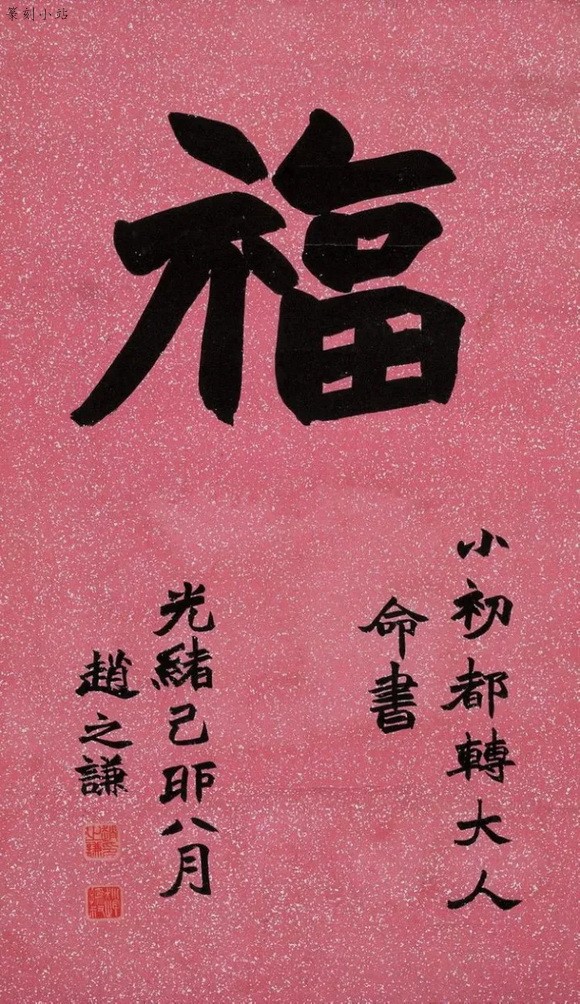 篆刻小站
福
小初都轉大人
命書
光緒己卯八月
趙之謙